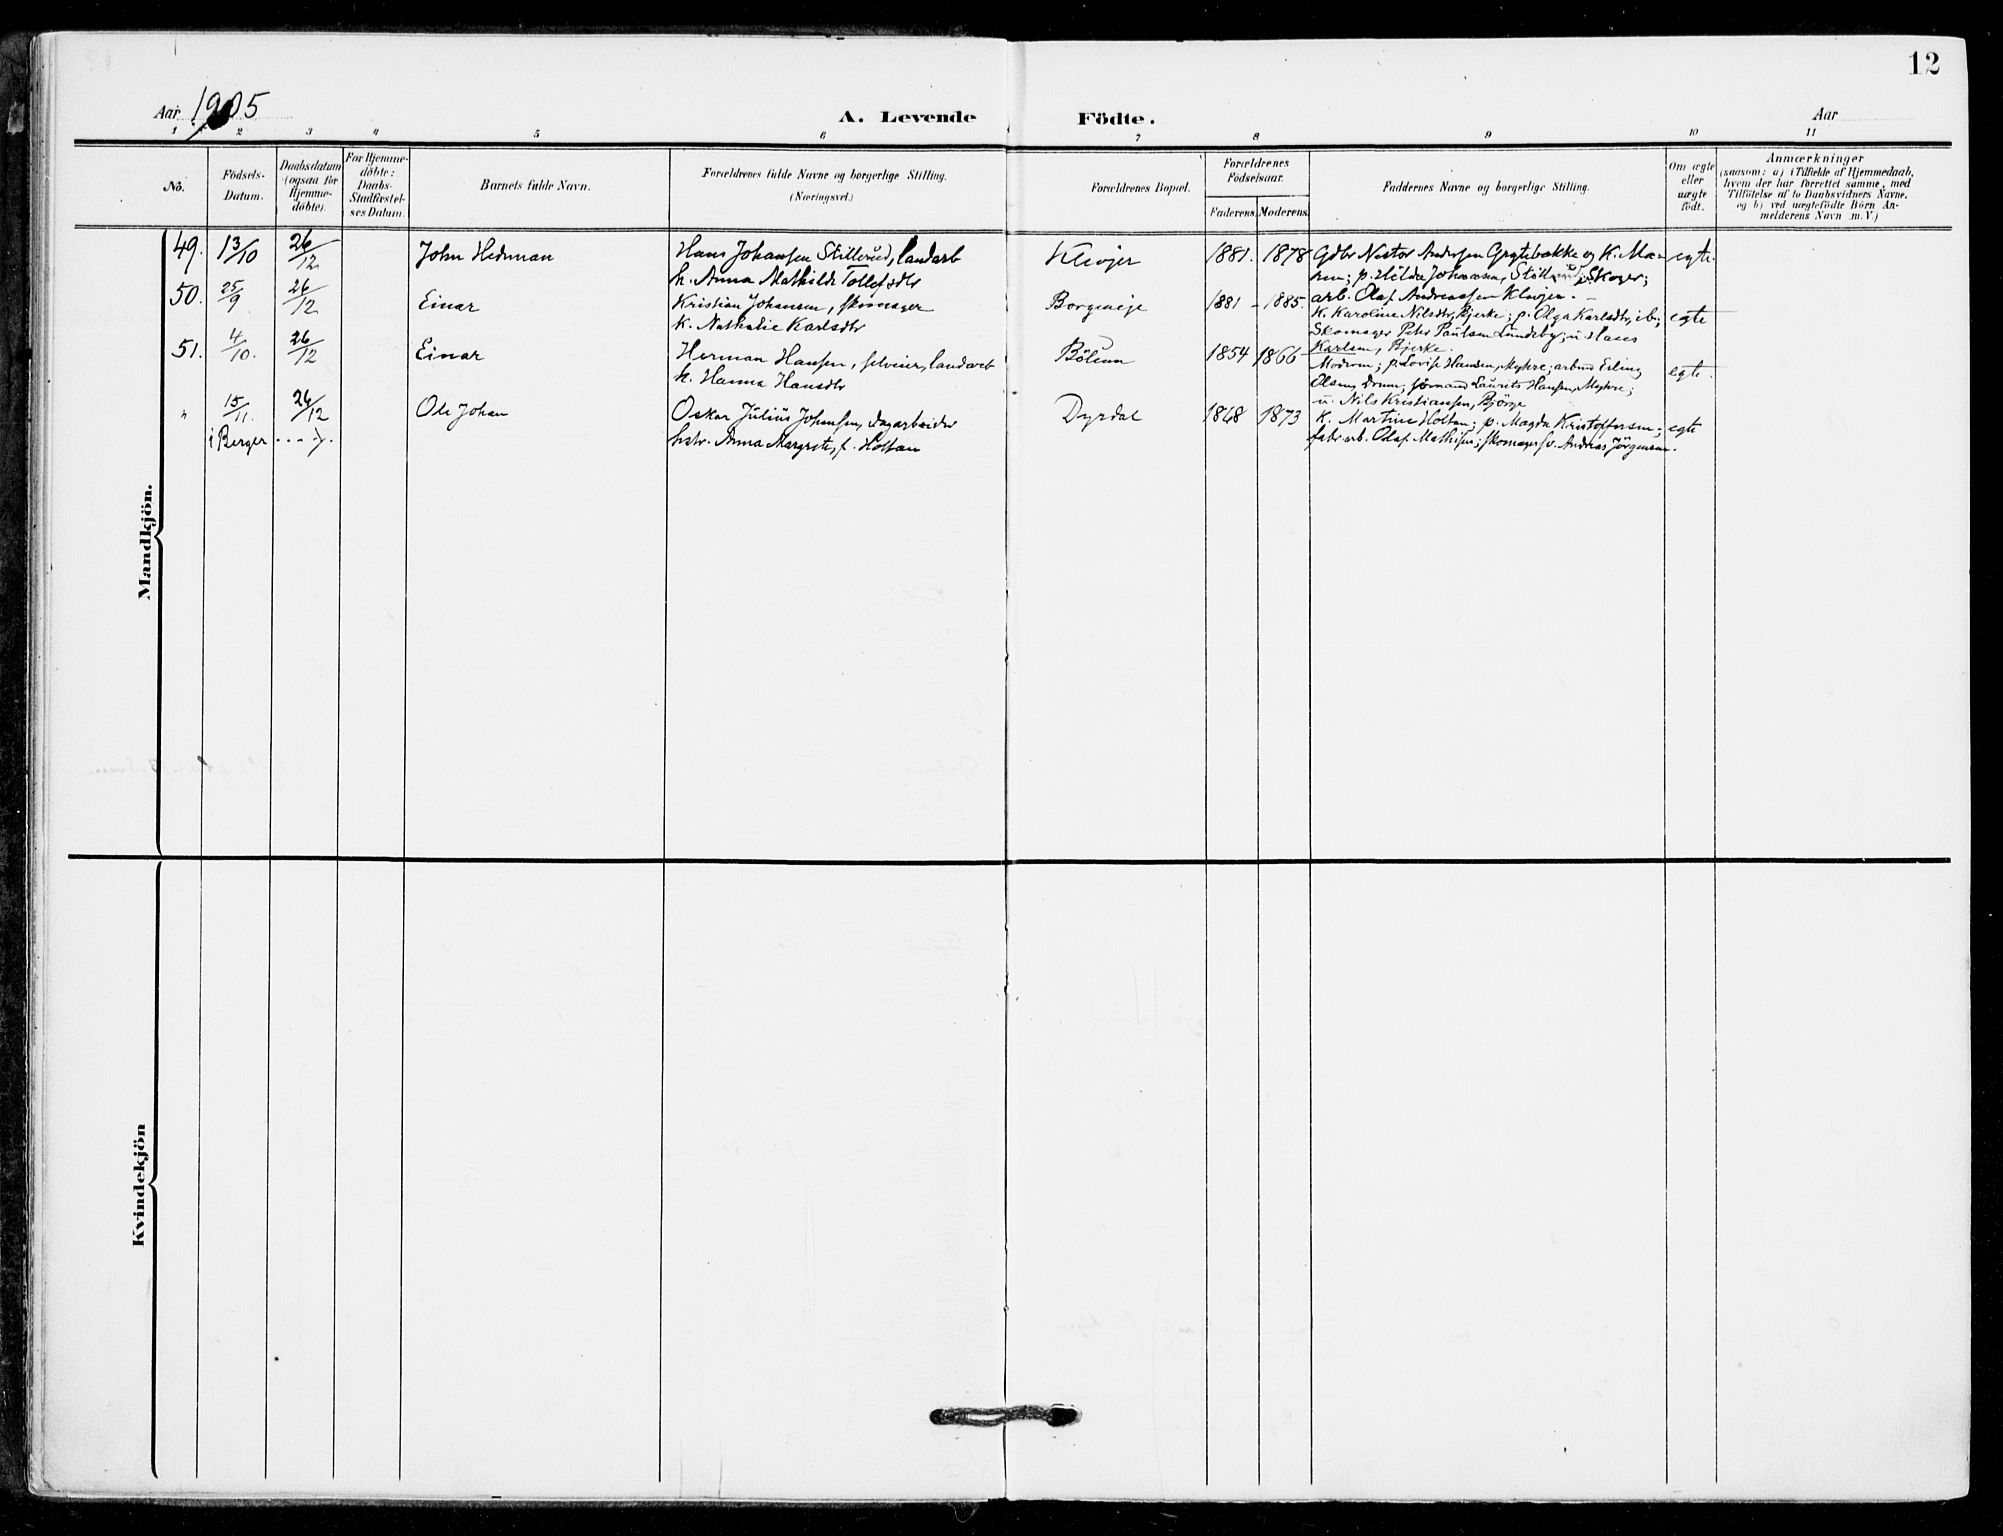 12
Aar 1905
A. Levende Födte.
Aar
1 2 3 4 5 6 7 8 9 10 11
No.
Födsels-
Datum.
Daabsdatum
(ogsaa for
Hjemme-
döbte).
For Hjemme-
döbte:
Daabs-
Stadfæstel-
ses Datum.
Barnets fulde Navn.
Forældrenes fulde Navne og borgerlige Stilling.
(Næringsvei.)
Forældrenes Bopæl.
Forældrenes
Födselsaar.
Faderens.
Moderens.
Faddernes Navne og borgerlige Stilling.
Om ægte
eller
uægte
födt.
Anmærkninger
(saasom: a) i Tilfælde af Hjemmedaab,
hvem der har forrettet samme, med
Tilföielse af to Daabsvidners Navne,
og b) ved uægtefödte Börn An-
melderens Navn m. V.)
Mandkjön.
49. 13/10 26/12 John Hedman
Hans Johansen Stillerud, landarb
h. Anna Mathilde Tollefsdtr
Klevjer 1881. 1878
Gdbr Nestor Andersen Grytebakke og K. Ma-
ren; p. Hilda Johansen, Stillerud, Skoger;
arb. Olaf Andreassen Klevjer.
egte.
50. 25/9 26/12 Einar
Kristian Johansen, skomager
k. Nathalie Karlsdtr
Borgeneje 1881 - 1885.
K. Karoline Nilsdtr, Bjerke; p. Olga Karlsdtr, ib.;
Skomager Peter Paulsen Lundeby; u. Hans
Karlsen, Bjerke.
egte
51. 4/10. 26/12 Einar
Herman Hansen, selveier, landarb
k. Hanna Hansdtr
1854 1866
Moderen; p. Lovise Hansen, Myhre; arbmd Erling
Olsen, Drum; Laurits Hansen, Myhre;
u. Nils Kristiansen, Bjørge
egte.
" 15/11. 26/12 Ole Johan
i Berger
Oskar Julius Johansen, dagarbeider
hstr. Anna Margrete, f. Holtan
Dyrdal 1868 1873
K. Martine Holtan; p. Magda Kristoffersen;
fabr.arb. Olaf Mathisen; skomagersv. Andreas Jörgensen.
egte
Kvindekjön